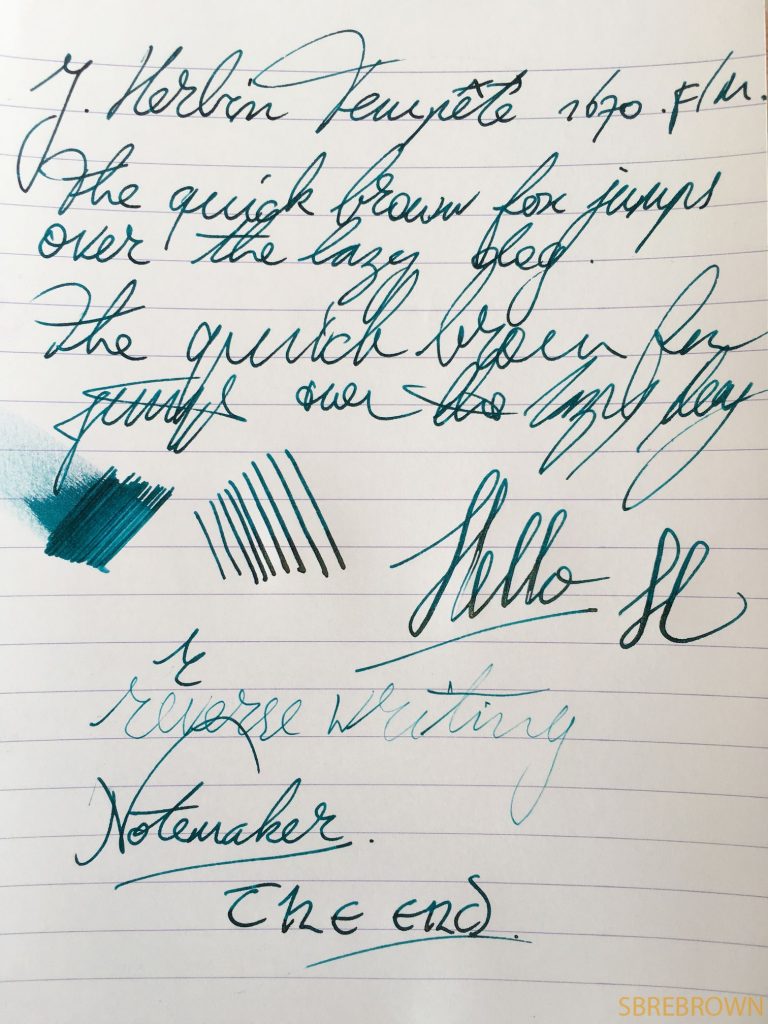 J. Herbin Tempête 1670. F/M.
The quick brown fox jumps
over the lazy dog.
The quick brown fox
jumps over the lazy dog
Hello H
r
reverse writing
Notemaker.
The end.
SBREBROWN